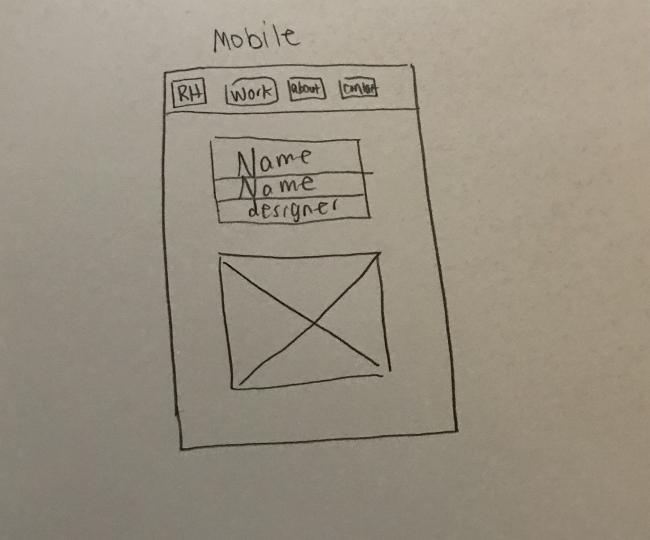 Mobile
RH Work About Contact
Name
Name
designer